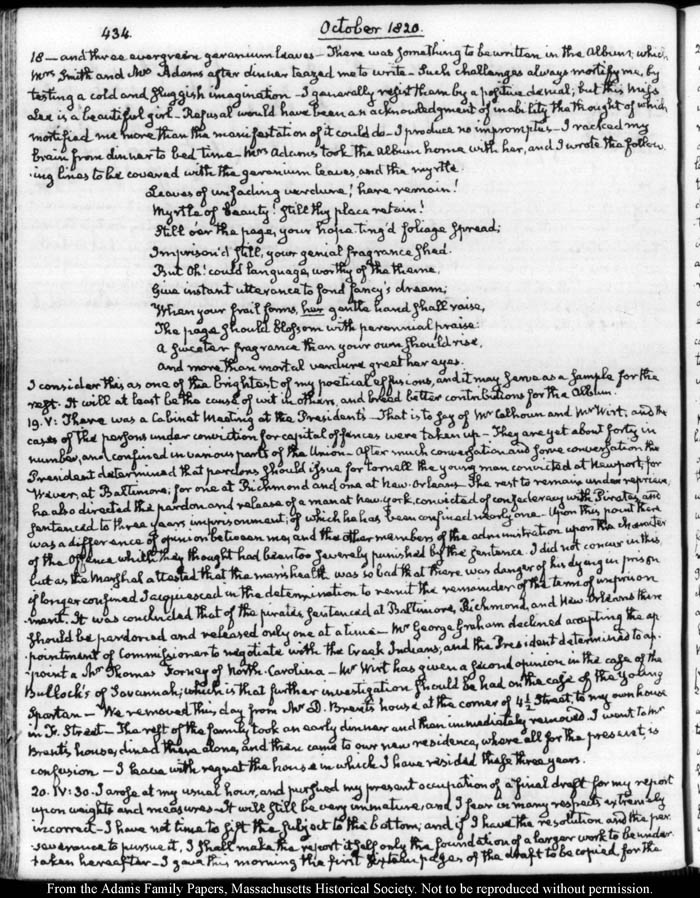 434.
October 1820.
18 — and three evergreen geranium leaves — There was something to be written in the Album; which
Mrs Smith and Mrs Adams after dinner teazed me to write — Such challenges always mortify me, by
testing a cold and sluggish imagination — I generally resist them by a positive denial; but this Miss
Lee is a beautiful girl — Refusal would have been an acknowledgment of inability the thought of which
mortified me more than the manifestation of it could do — I produce no impromptus — I racked my
brain from dinner to bed time — Mrs Adams took the Album home with her, and I wrote the follow
ing lines to be covered with the geranium leaves, and the myrtle.
Leaves of unfading verdure! here remain!
Myrtle of beauty! still thy place retain!
Still o'er the page, your hope ting'd foliage spread;
Imprison'd still, your genial fragrance shed.
But Oh! could language, worthy of the theme,
Give instant utterance to fond fancy's dream;
When your frail forms, her gentle hand shall raise,
The page should blossom with perennial praise:
A sweeter fragrance than your own should rise,
And more than mortal verdure greet her eyes.
I consider this as one of the brightest of my poetical effusions, and it may serve as a sample for the
rest. It will at least be the cause of wit in others, and breed better contributions for the Album.
19. V: There was a Cabinet Meeting at the President's — That is to say of Mr Calhoun and Mr Wirt, and the
cases of the persons under conviction for capital offences were taken up — They are yet about forty in
number, and confined in various parts of the Union — After much conversation and some conversation the
President determined that pardons should issue for Cornell the young man convicted at Newport, for
Weaver, at Baltimore; for one at Richmond and one at New Orleans. The rest to remain under reprieve,
he also directed the pardon and release of a man at New York, convicted of confederacy with Pirates, and
sentenced to three years imprisonment; of which he has been confined nearly one — Upon this point there
was a difference of opinion between me, and the other members of the administration upon the character
of the offence which they thought had been too severely punished by the sentence. I did not concur in this,
but as the Marshal attested that the man's health was so bad that there was danger of his dying in prison
if longer confined I acquiesced in the determination to remit the remainder of the term of imprison
ment. It was concluded that of the pirates sentenced at Baltimore, Richmond, and New Orleans there
should be pardoned and released only one at a time — Mr George Graham declined accepting the ap
pointment of Commissioner to negotiate with the Creek Indians; and the President determined to ap
point a Mr Thomas Forney of North-Carolina — Mr Wirt has given a second opinion in the case of the
Bullock's of Savannah; which is that further investigation should be had on the case of the young
Spartan — We removed this day from Mr D. Brent's house at the corner of 4½ Street, to my own house
in F. Street — The rest of the family took an early dinner and then immediately removed. I went to Mr
Brent's house, dined there alone, and then came to our new residence, where all for the present, is
confusion — I leave with regret the house in which I have resided these three years.
20. IV:30. I arose at my usual hour, and pursued my present occupation of a final draft for my report
upon weights and measures — It will still be very immature, and I fear in many respects extremely
incorrect — I have not time to sift the subject to the bottom; and if I have the resolution and the per
severance to pursue it, I shall make the report itself only the foundation of a larger work to be under
taken hereafter — I gave this morning the first sixteen pages of the draft to be copied, for the
From the Adams Family Papers, Massachusetts Historical Society. Not to be reproduced without permission.